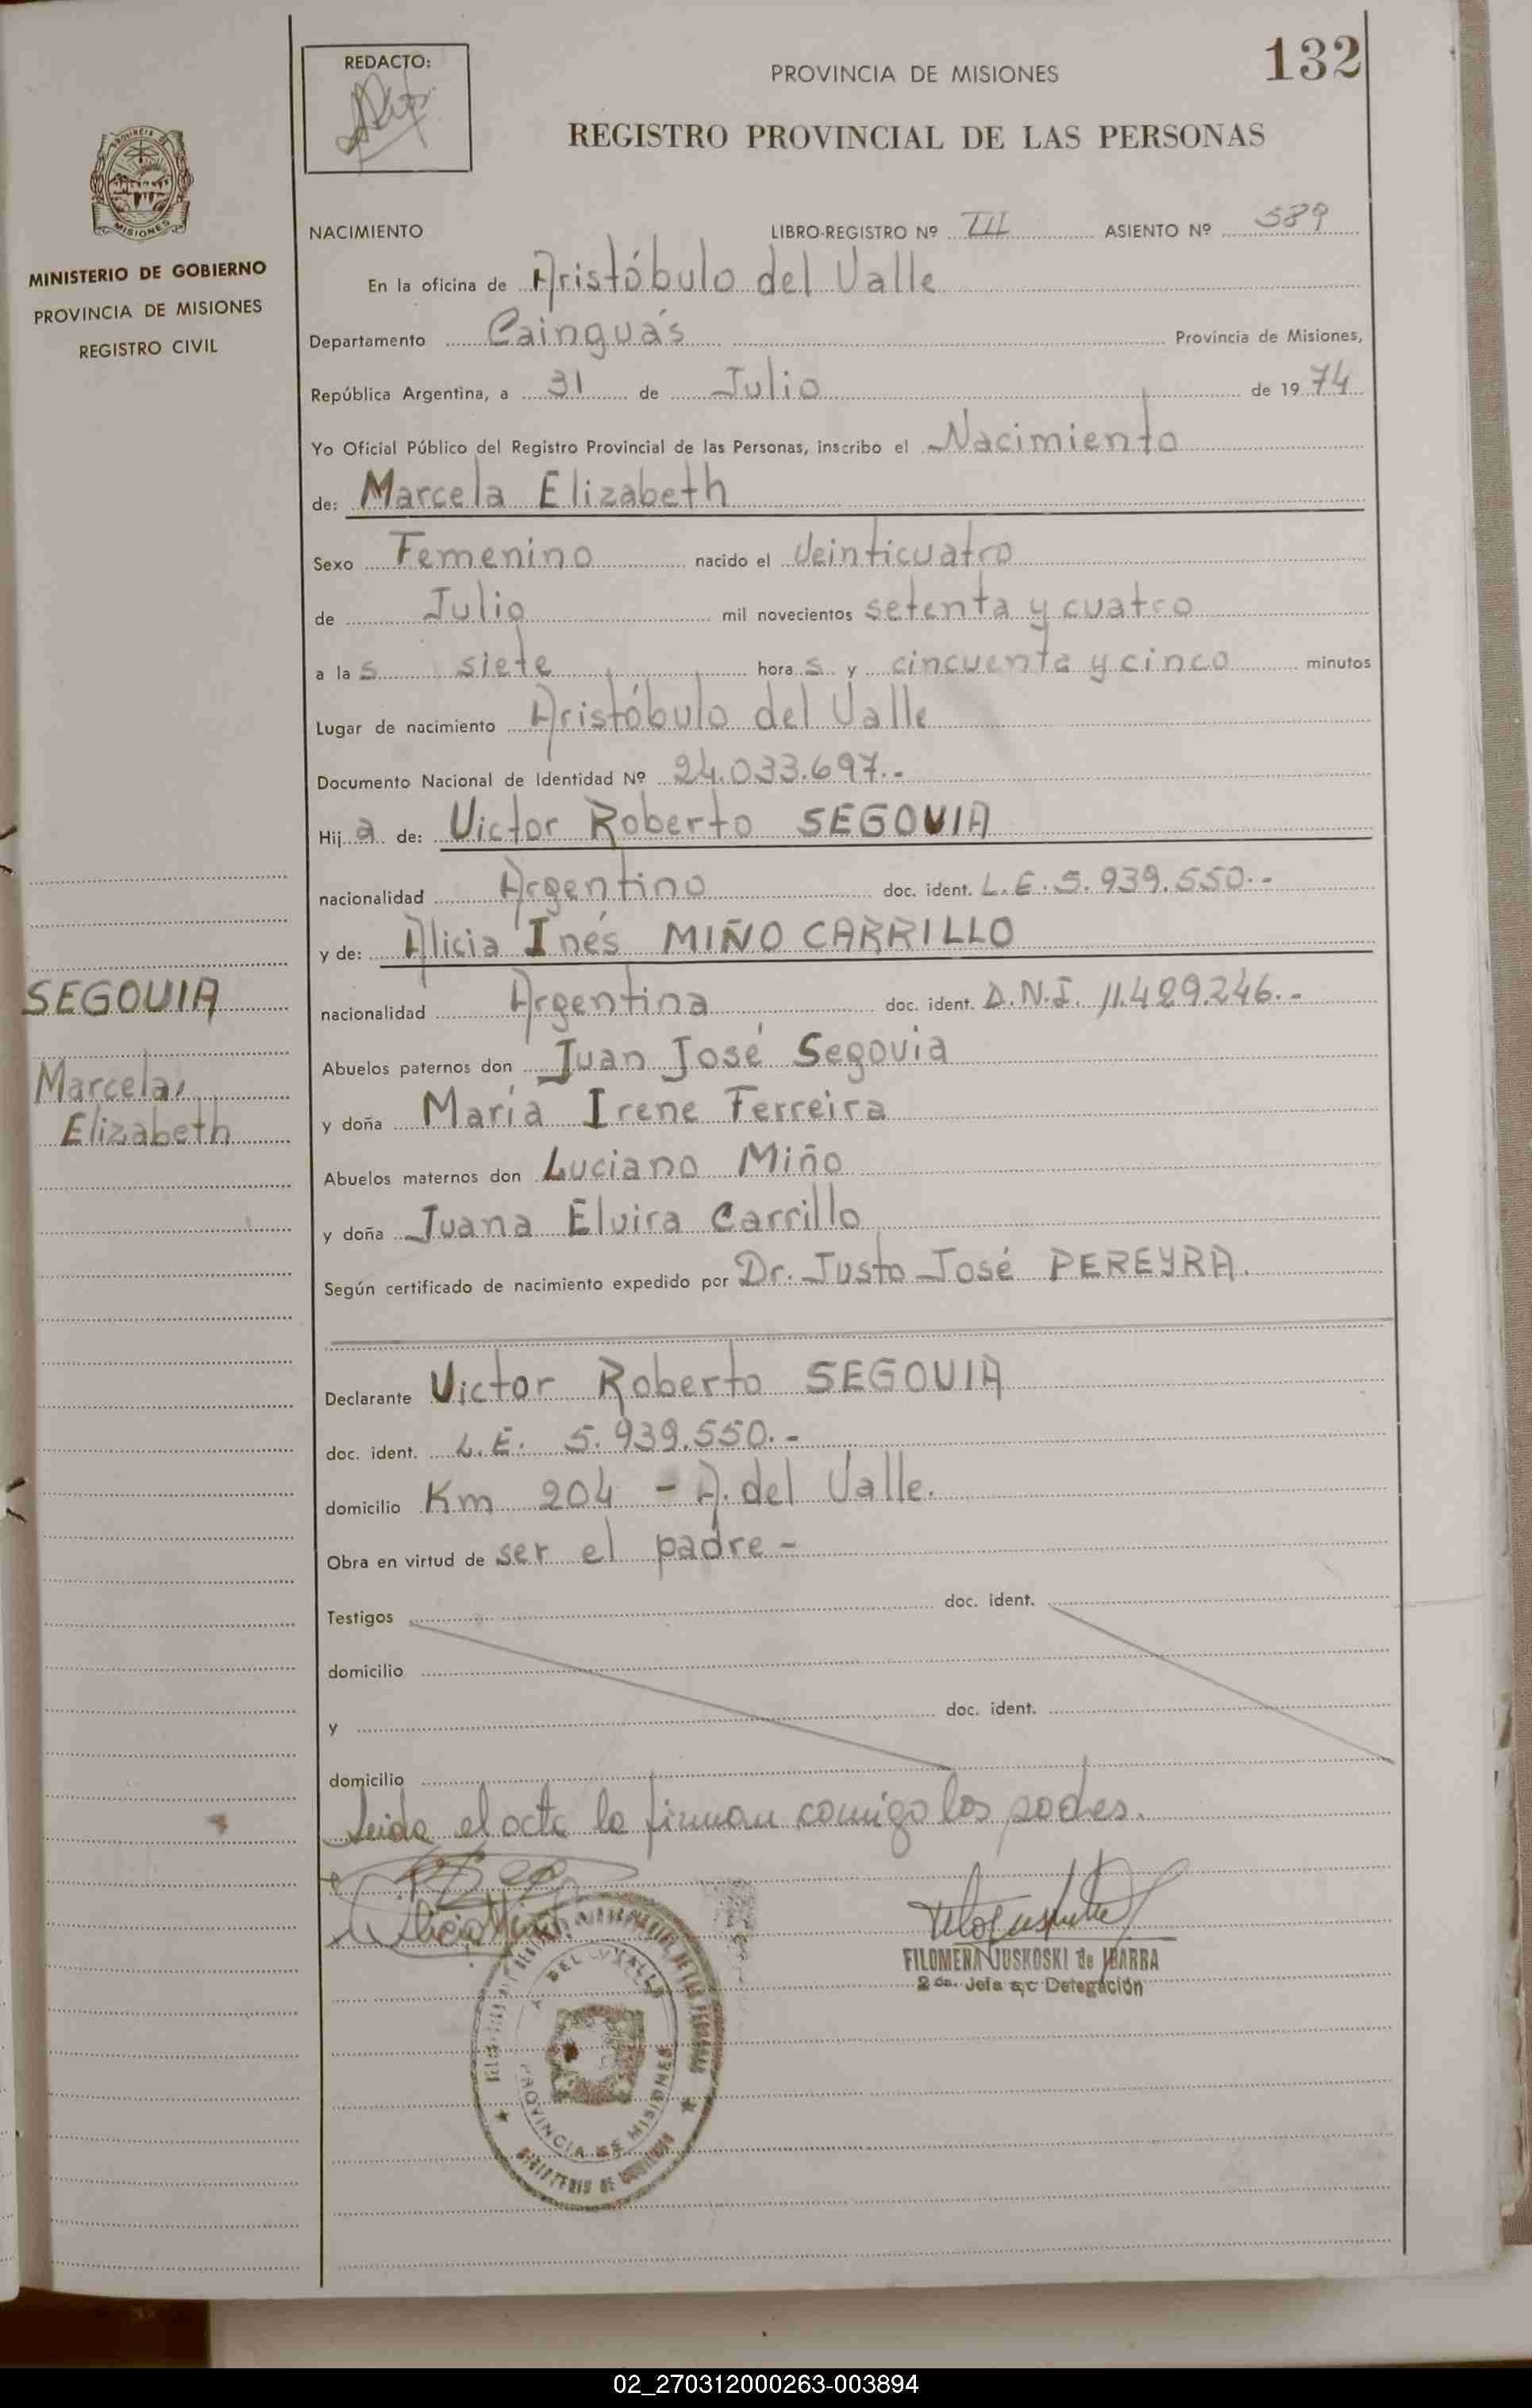 132
REDACTO:
PROVINCIA DE MISIONES
REGISTRO PROVINCIAL DE LAS PERSONAS
MISIONES
MINISTERIO DE GOBIERNO
PROVINCIA DE MISIONES
REGISTRO CIVIL
NACIMIENTO LIBRO-REGISTRO Nº III ASIENTO Nº 589
En la oficina de Aristóbulo del Valle
Departamento Cainguás Provincia de Misiones,
República Argentina, a 31 de Julio de 1974
Yo Oficial Público del Registro Provincial de las Personas, inscribo el Nacimiento
de: Marcela Elizabeth
Sexo Femenino nacido el Veinticuatro
de Julio mil novecientos setenta y cuatro
a las siete horas y cincuenta y cinco minutos
Lugar de nacimiento Aristóbulo del Valle
Documento Nacional de Identidad Nº 24.033.697.-
Hija de: Victor Roberto SEGOVIA
nacionalidad Argentino doc. ident. L.E. 5.939.550.-
y de: Alicia Inés MIÑO CARRILLO
nacionalidad Argentina doc. ident. D.N.I. 11.429.246.-
SEGOVIA
Marcela
Elizabeth
Abuelos paternos don Juan José Segovia
y doña María Irene Ferreira
Abuelos maternos don Luciano Miño
y doña Juana Elvira Carrillo
Según certificado de nacimiento expedido por Dr. Justo José PEREYRA.
Declarante Victor Roberto SEGOVIA
doc. ident. L.E. 5.939.550.-
domicilio Km 204 - A. del Valle.
Obra en virtud de ser el padre-
Testigos doc. ident.
domicilio
y doc. ident.
domicilio
Leida el acta la firman comigo los padres.
Alicia Miño
FILOMENA JUSKOSKI de IBARRA
2da. Jefa a/c Delegación
DEL VALLE
PROVINCIA DE MISIONES
MINISTERIO DE GOBIERNO
02_270312000263-003894